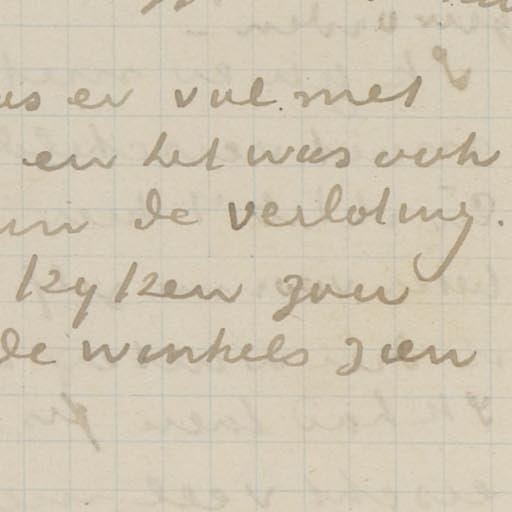 er vol met
en het was ook
de verloting.
kyken gaan
de winkels zien